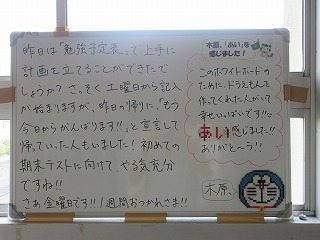 昨日は「勉強予定表」で上手に
計画を立てることができたで
しょうか？さっそく土曜日から記入
が始まりますが、昨日の帰りに、「もう
今日からがんばります!!」と宣言して
帰っていった人もいました！初めての
期末テストに向けて、やる気充分
ですね!!
さあ金曜日です!!１週間おつかれさま!!
木原、「あい」を
感じました！
このホワイトボードの
ために、ドラえもんを
作ってくれた人がいて
幸せいっぱいです!!
あい感じました!!
ありがと〜う!!
木原